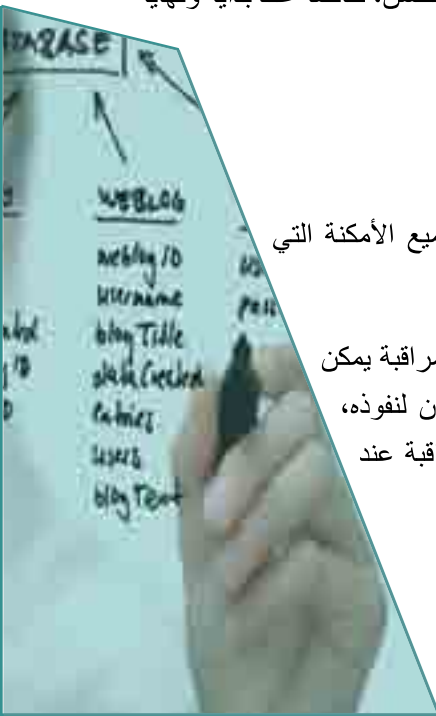 TABASE
WEBLOG
weblog ID
username
blog Title
dateCreated
entries
users
blog Text
us
pass
ميع الأمكنة التي
مراقبة يمكن
ن لنفوذه،
قبة عند